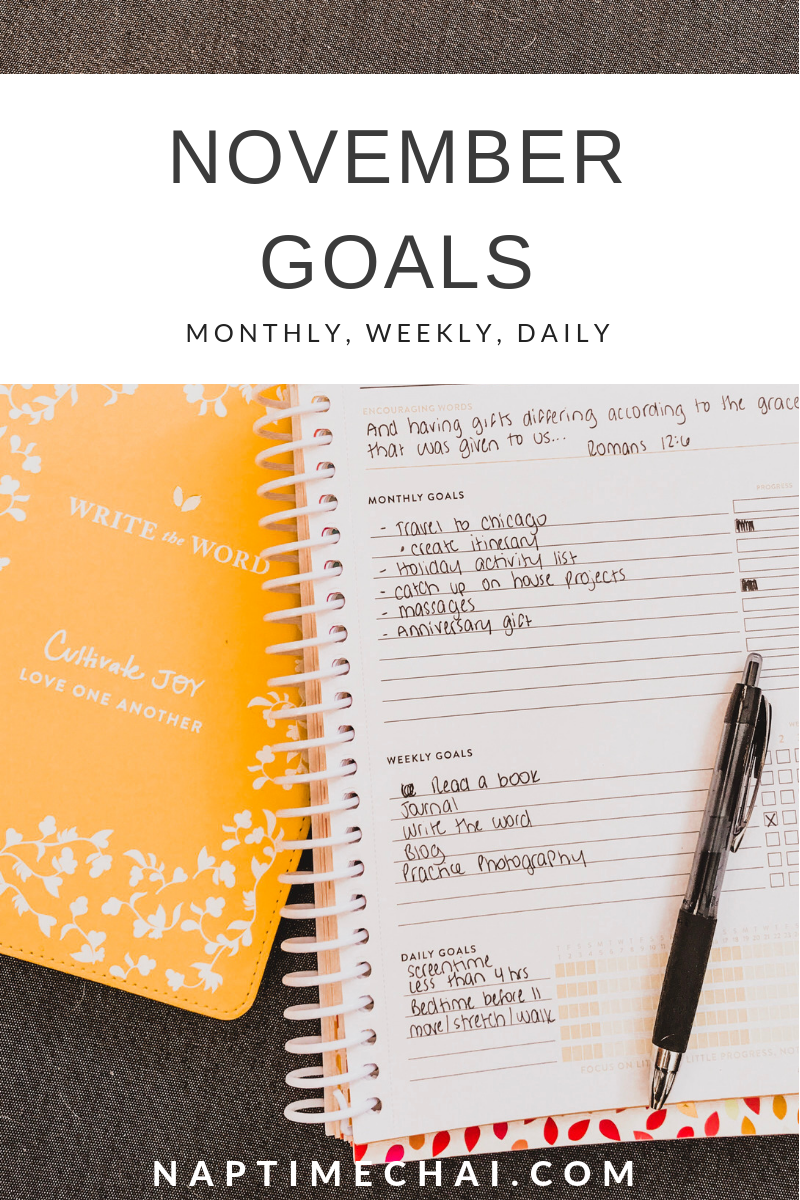 NOVEMBER
GOALS
MONTHLY, WEEKLY, DAILY
WRITE the WORD
Cultivate JOY
LOVE ONE ANOTHER
ENCOURAGING WORDS
And having gifts differing according to the grace
that was given to us... Romans 12:6
PROGRESS
MONTHLY GOALS
- Travel to chicago
• create itinerary
- Holiday activity list
- catch up on house projects
- massages
- Anniversary gift
WEEKLY GOALS
2
Read a book
Journal
write the word
Blog
Practice Photography
DAILY GOALS
screentime
less than 4 hrs
Bedtime before 11
move/stretch/walk
FOCUS ON LITTLE PROGRESS,
NAPTIMECHAI.COM